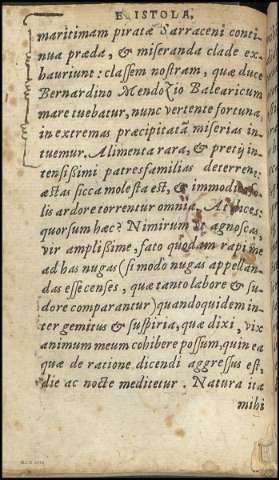 EPISTOLA,
maritimam piratæ Sarraceni conti
nua præda, & miseranda clade ex-
hauriunt: classem nostram, quæ duce
Bernardino Mendozio Balearicum
mare tuebatur, nunc vertente fortuna,
in extremas præcipitatã miserias in
tuemur. Alimenta rara, & pretij in-
tensissimi patresfamilias deterrent:
æstas sicca molesta est, & immodico so
lis ardore torrentur omnia. At dices:
quorsum hæc? Nimirum ut agnoscas,
vir amplissime, fato quodam rapi me
ad has nugas (si modo nugas appellan-
das esse censes, quæ tanto labore & su-
dore comparantur) quandoquidem in-
ter gemitus & suspiria, quæ dixi, vix
animum meum cohibere possum, quin ea
quæ de ratione dicendi aggressus est,
die ac nocte meditetur. Natura ita
mihi